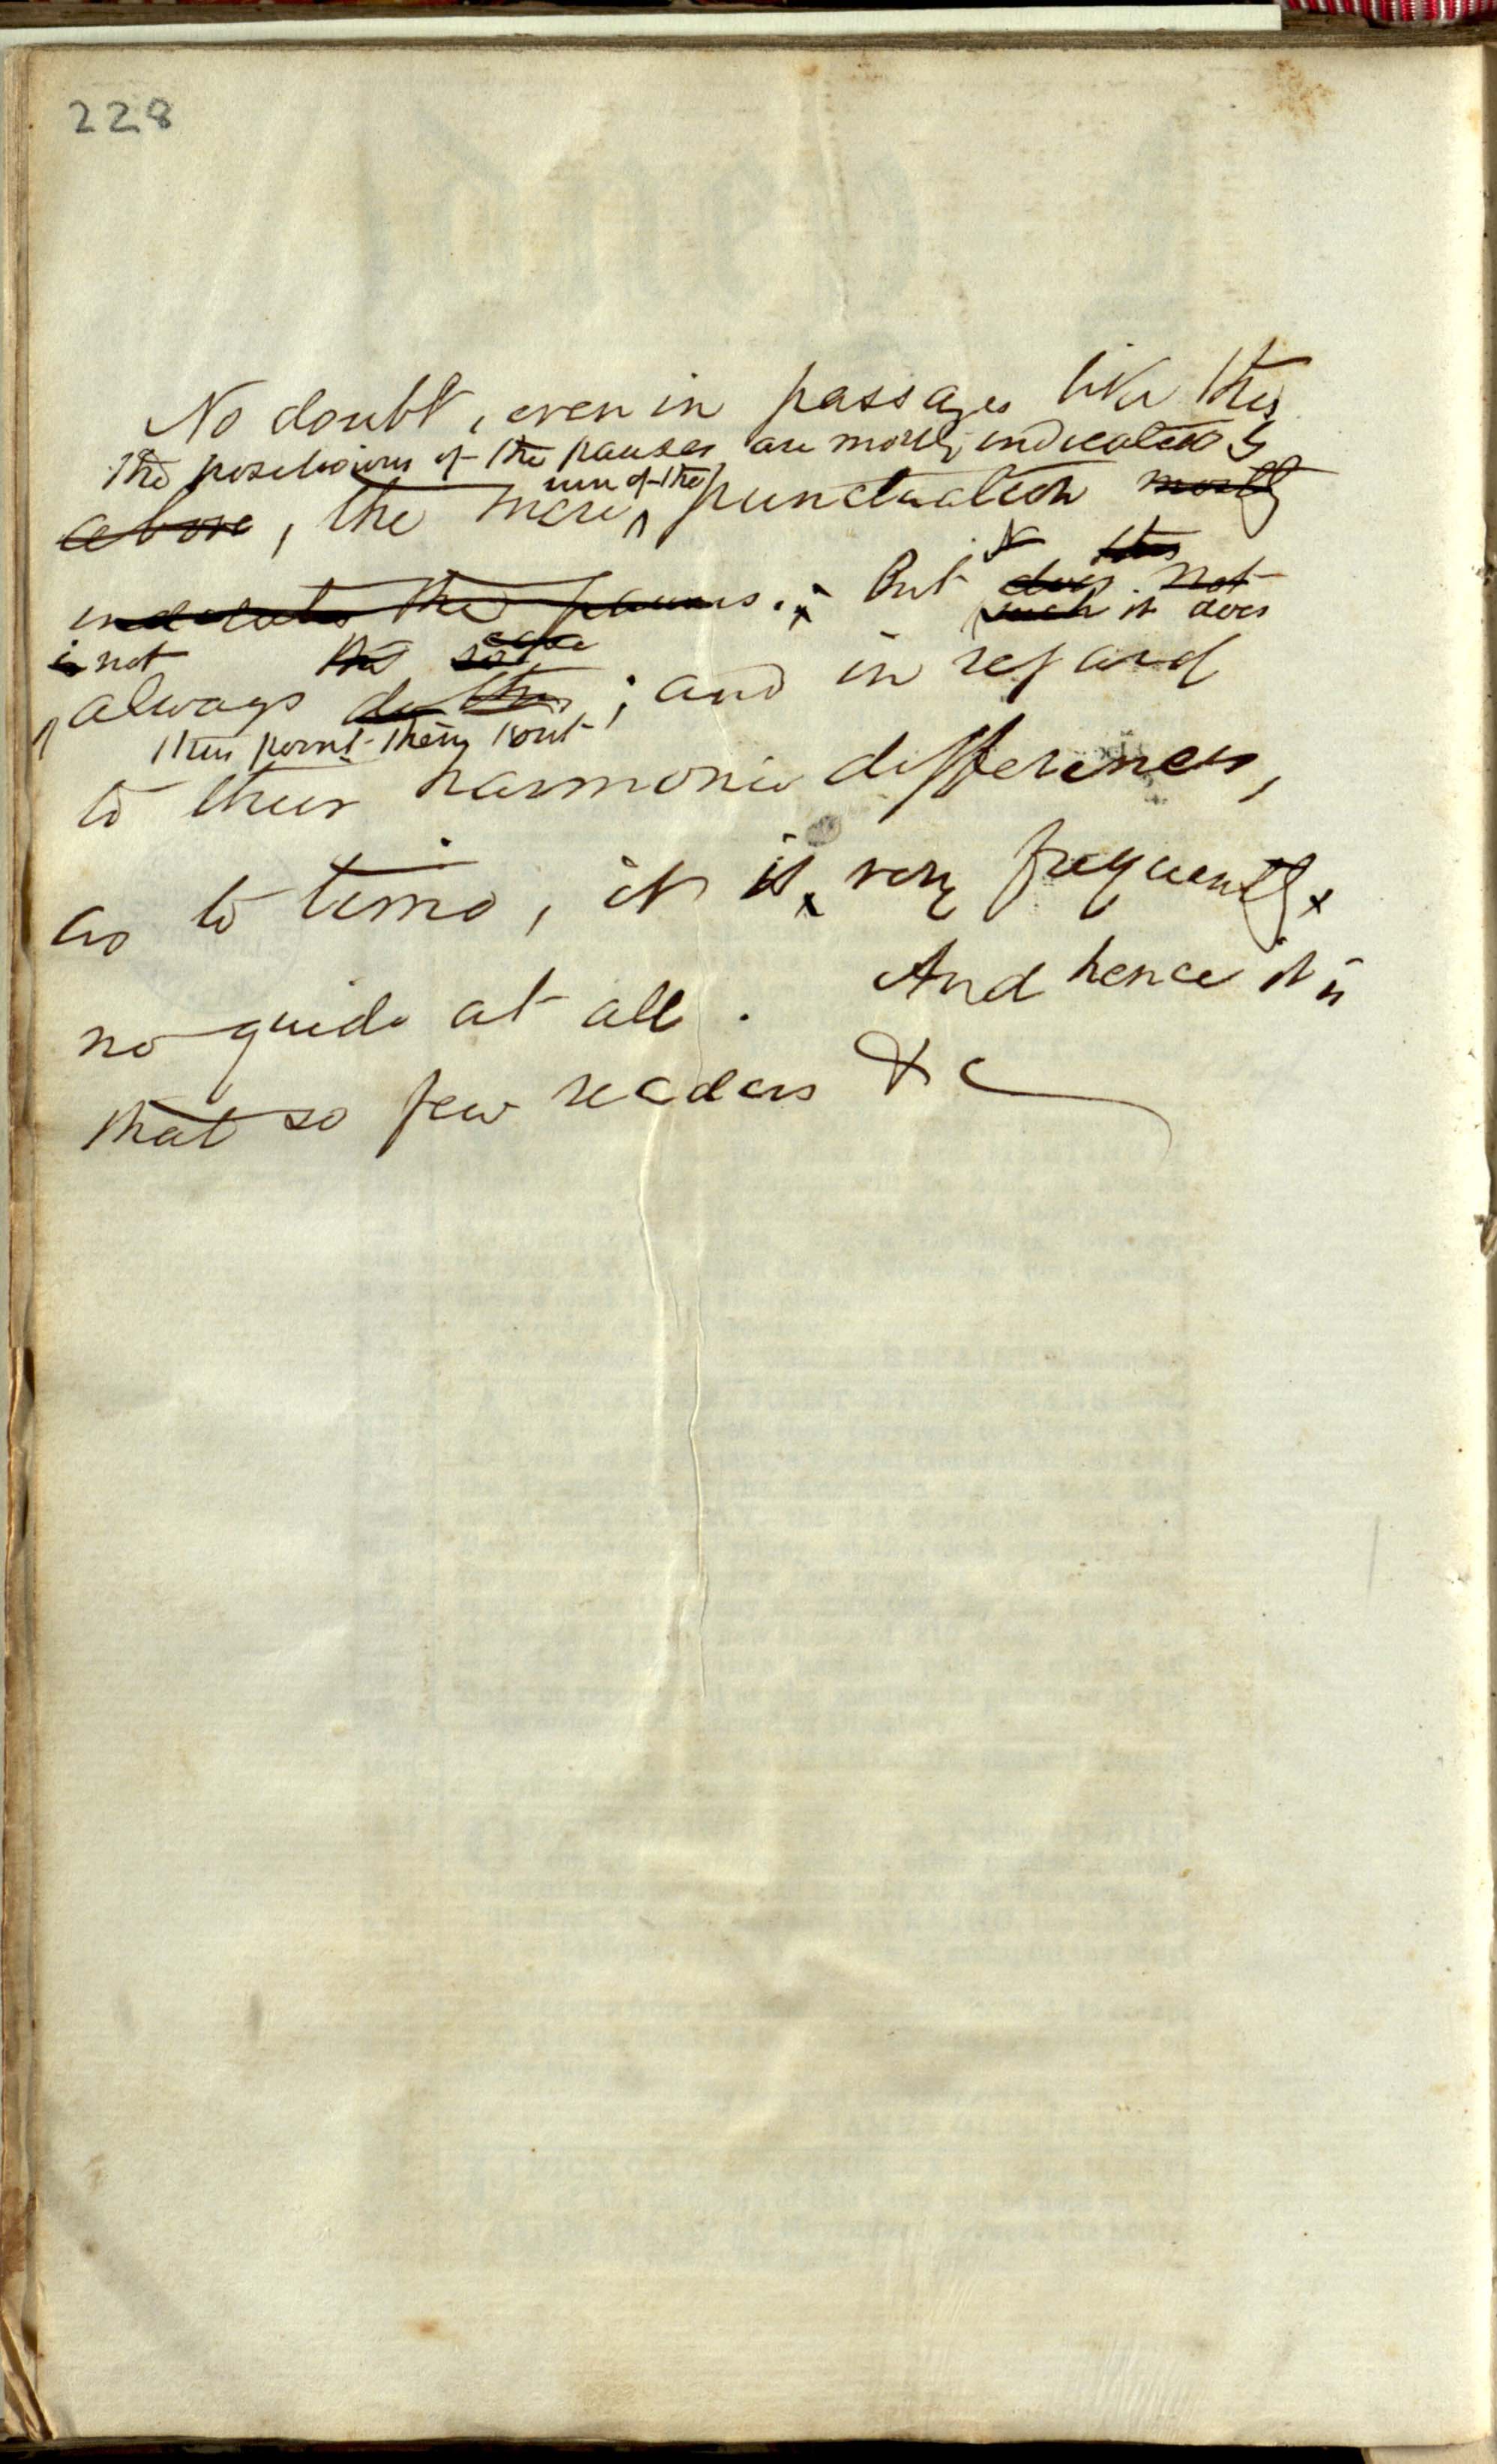 228
No doubt, even in passages like this
the positions of the pauses are mostly indicated by
above, the mere run of the punctuation mostly
indicates the pauses. But it does this not
such it does
is not
always do this; and in regard
thus point them out
to their harmonic differences,
as to time, it is very frequently
no guide at all. And hence it is
that so few readers &c